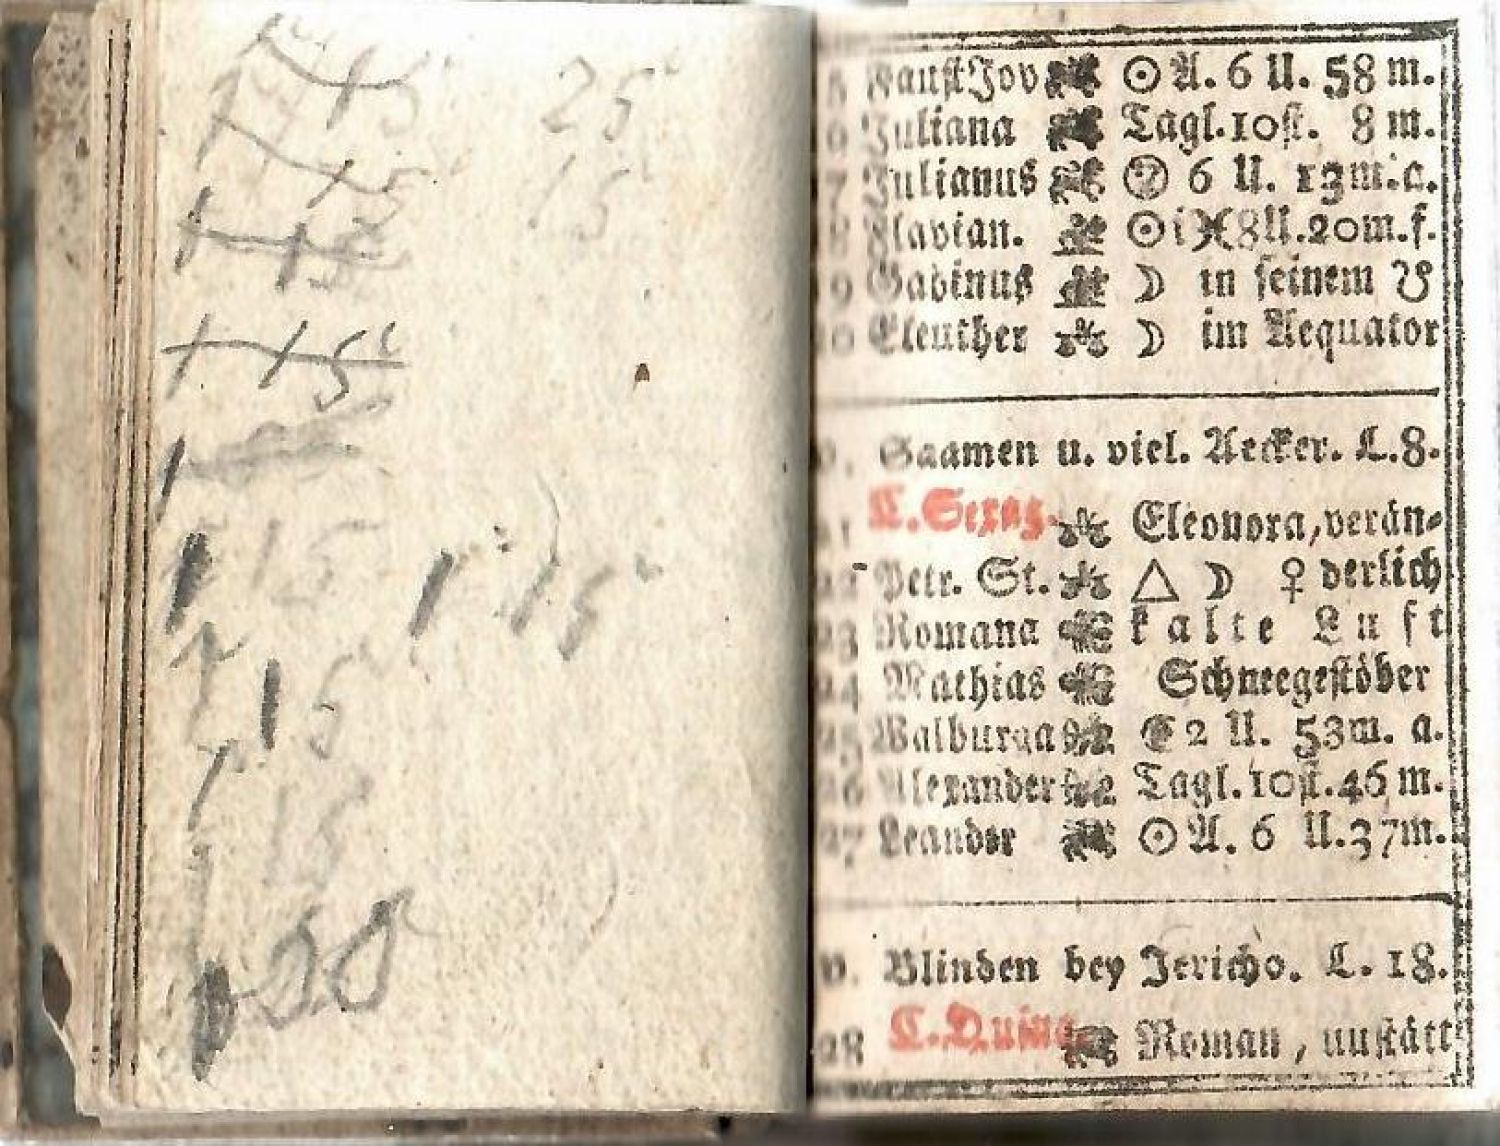 15
25
15
15
15
15
15
1 15
15
15
20
Faust Jov ☉ A. 6 U. 58 m.
Juliana Tagl. 10 st. 8 m.
7 Julianus 6 U. 13 m. a.
8 Flavian. ☉ i ♓ 8 U. 20 m. f.
9 Gabinus ☽ in seinem ☋
10 Eleuther ☽ im Aequator
v. Saamen u. viel. Aecker. L. 8.
C. Sexag. Eleonora, verän-
22 Petr. St. △ ☽ ♀ derlich
23 Romana kalte Luft
24 Mathias Schneegestöber
25 Walburga ☾ 2 U. 53 m. a.
26 Alexander Tagl. 10 st. 46 m.
27 Leander ☉ A. 6 U. 37 m.
v. Blinden bey Jericho. L. 18.
28 C. Quinq. Roman, unstätt